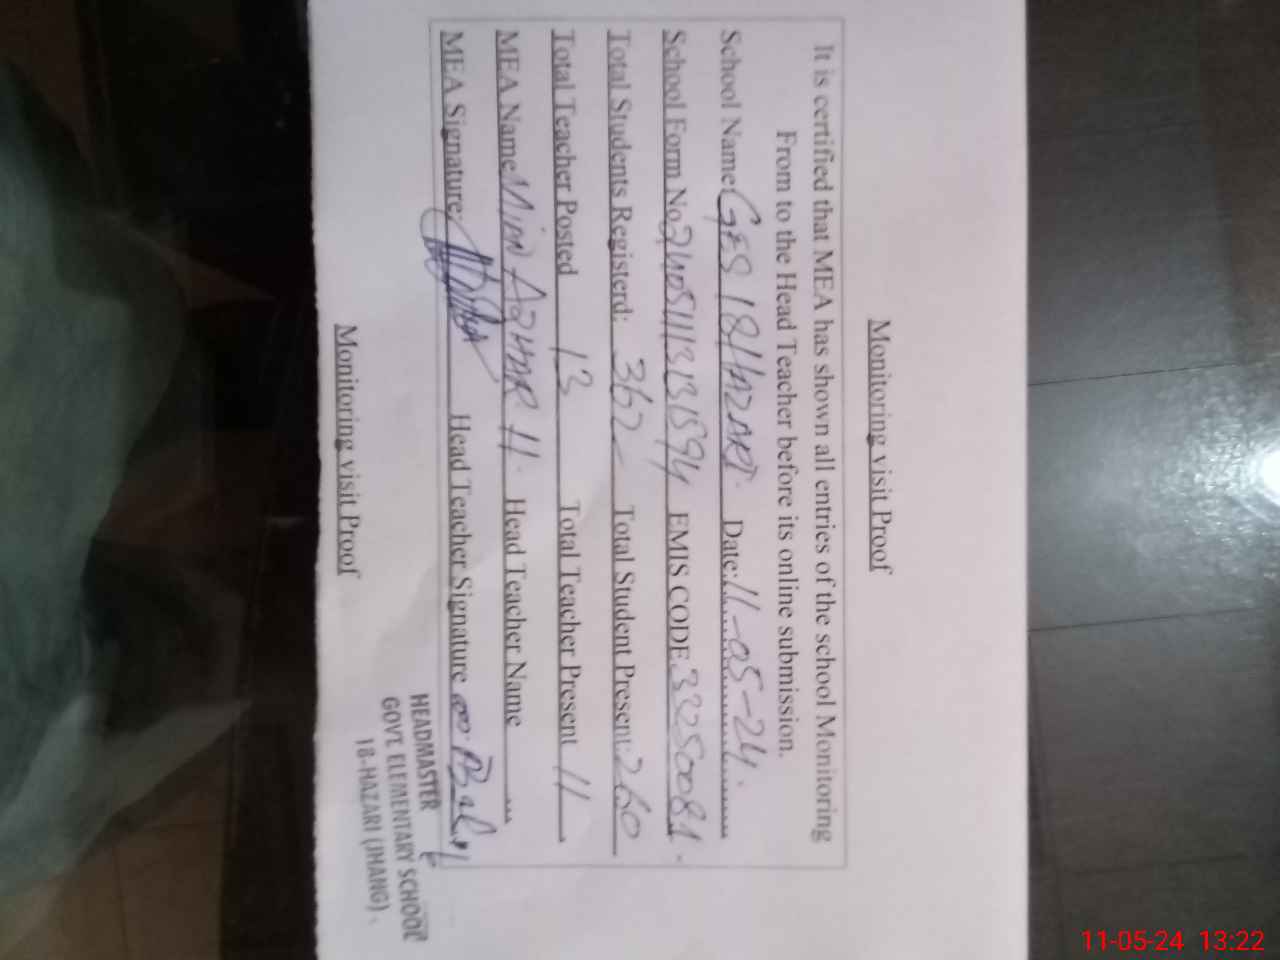 Monitoring visit Proof
It is certified that MEA has shown all entries of the school Monitoring
From to the Head Teacher before its online submission.
School Name: GES 18/HAZARI. Date: 11-05-24.
School Form No. EMIS CODE 33250081.
Total Students Registerd: 362 Total Student Present: 260
Total Teacher Posted 13 Total Teacher Present 11
MEA Name MIAN AZHAR H. Head Teacher Name
MEA Signature: Head Teacher Signature
HEADMASTER
GOVE ELEMENTARY SCHOOL
18-HAZARI (JHANG)
Monitoring visit Proof
11-05-24 13:22